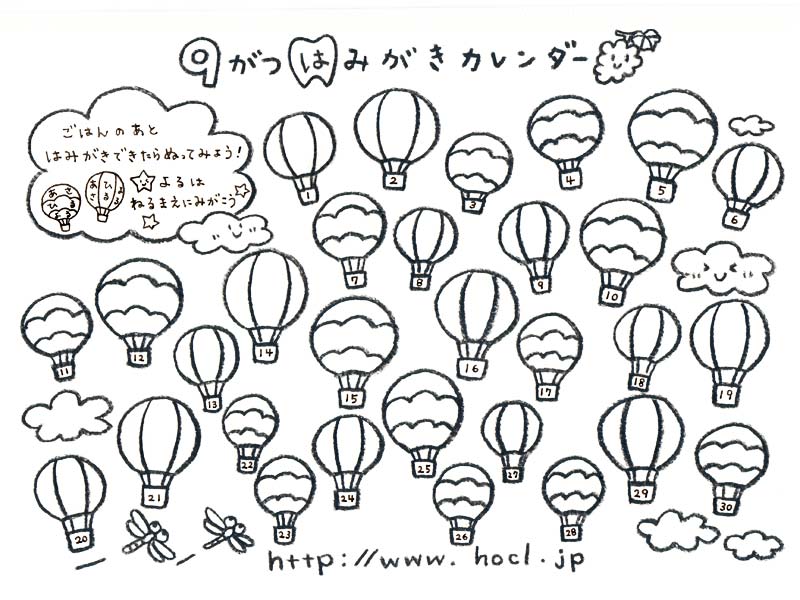 9がつ はみがきカレンダー
ごはんのあと
はみがきできたらぬってみよう!
あさ
ひる
よる
あさ
ひる
よる
よるは
ねるまえにみがこう
1
2
3
4
5
6
7
8
9
10
11
12
13
14
15
16
17
18
19
20
21
22
23
24
25
26
27
28
29
30
http://www.hocl.jp